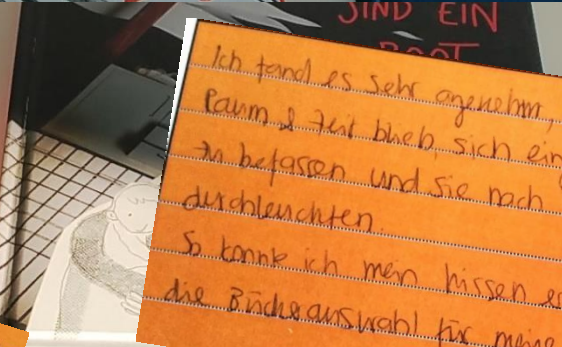 SIND EIN
BOOT
Ich fand es sehr angenehm,
Raum & Zeit blieb, sich ein
zu befassen und sie nach
durchleuchten.
So konnte ich mein Wissen er
die Bücherauswahl für meine